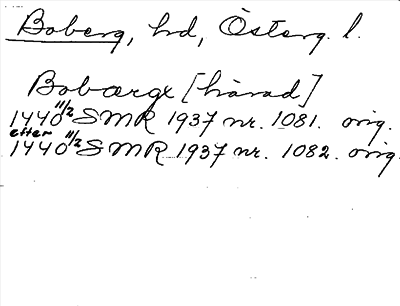 Boberg, hd, Österg. l.
Bobærge [härad]
1440 11/2 SMR 1937 nr. 1081. orig.
efter
1440 11/2 SMR 1937 nr. 1082. orig.